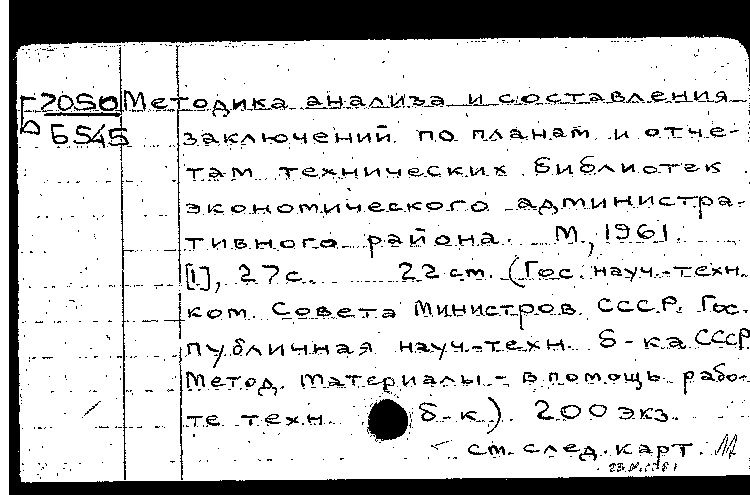 Б2050 Методика анализа и составления
Б545 заключений по планам и отче-
там технических библиотек
экономического администра-
тивного района. М., 1961.
[1], 27с. 22 см. (Гос. науч.-техн.
ком. Совета Министров СССР. Гос.
публичная науч-техн. б-ка СССР
Метод. материалы - в помощь рабо-
те техн. б-к). 200 экз.
см. след. карт.